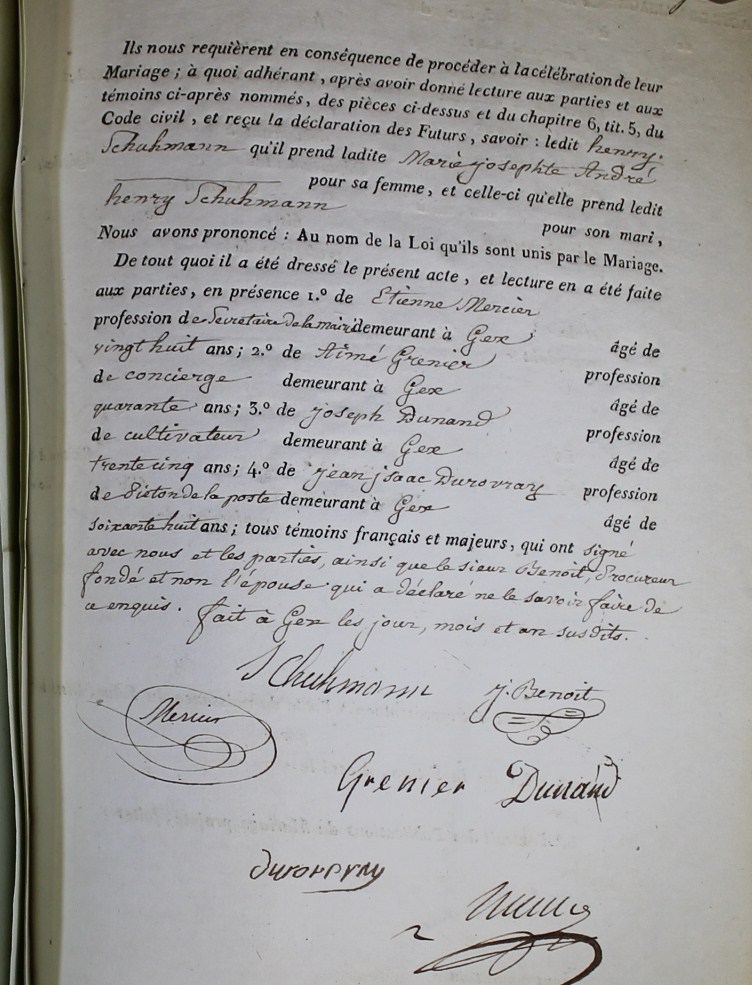 Ils nous requièrent en conséquence de procéder à la célébration de leur
Mariage ; à quoi adhérant , après avoir donné lecture aux parties et aux
témoins ci-après nommés, des pièces ci-dessus et du chapitre 6, tit. 5, du
Code civil , et reçu la déclaration des Futurs , savoir : ledit henry
Schuhmann qu'il prend ladite Marie josephte André
pour sa femme, et celle-ci qu'elle prend ledit
henry Schuhmann pour son mari ,
Nous avons prononcé : Au nom de la Loi qu'ils sont unis par le Mariage.
De tout quoi il a été dressé le présent acte , et lecture en a été faite
aux parties, en présence 1.º de Etienne Mercier
profession de Secretaire de la mairie demeurant à Gex âgé de
vingt huit ans ; 2.º de Aimé Grenier profession
de concierge demeurant à Gex âgé de
quarante ans ; 3.º de joseph Dunand profession
de cultivateur demeurant à Gex âgé de
trente cinq ans ; 4.º de jean jsaac Durovray profession
de Piéton de la poste demeurant à Gex âgé de
soixante huit ans ; tous témoins français et majeurs, qui ont signé
avec nous et les parties, ainsi que le sieur Benoit, Procureur
fondé et non l'épouse qui a déclaré ne le savoir faire de
ce enquis. fait à Gex les jour, mois et an susdits.
Schuhmann j. Benoit
Mercier
Grenier Dunand
durovray